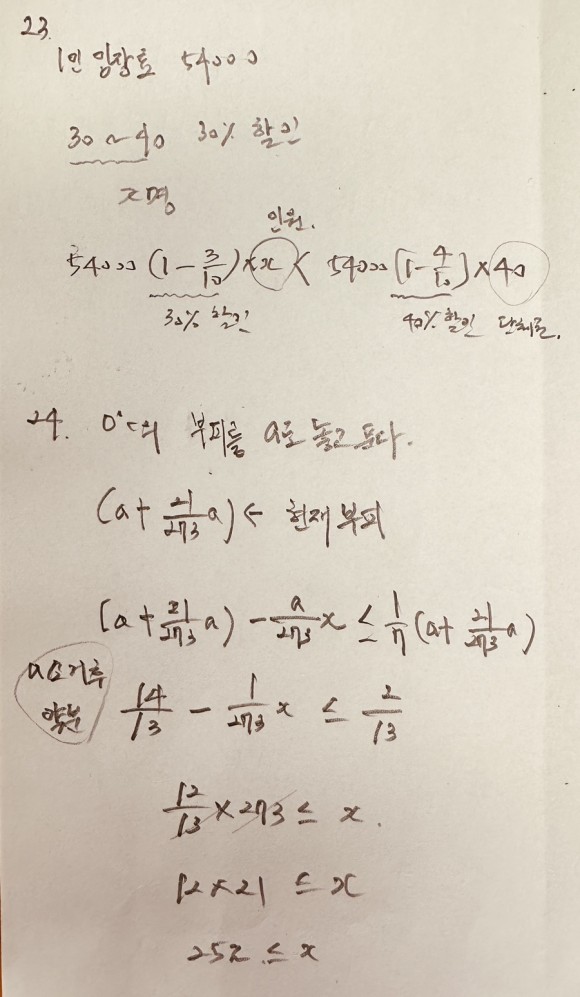 23.
1인 입장료 54000
30 ~ 40 30% 할인
x명
인원.
54000 (1 - 3/10) × x < 54000 (1 - 4/10) × 40
30% 할인 40% 할인 단체료.
24. 0℃의 부피를 a로 놓고 푼다.
(a + 21/273 a) ← 현재 부피
(a + 21/273 a) - a/273 x ≤ 1/7 (a + 21/273 a)
a소거후
약분
14/13 - 1/273 x ≤ 2/13
12/13 × 273 ≤ x.
12 × 21 ≤ x
252 ≤ x